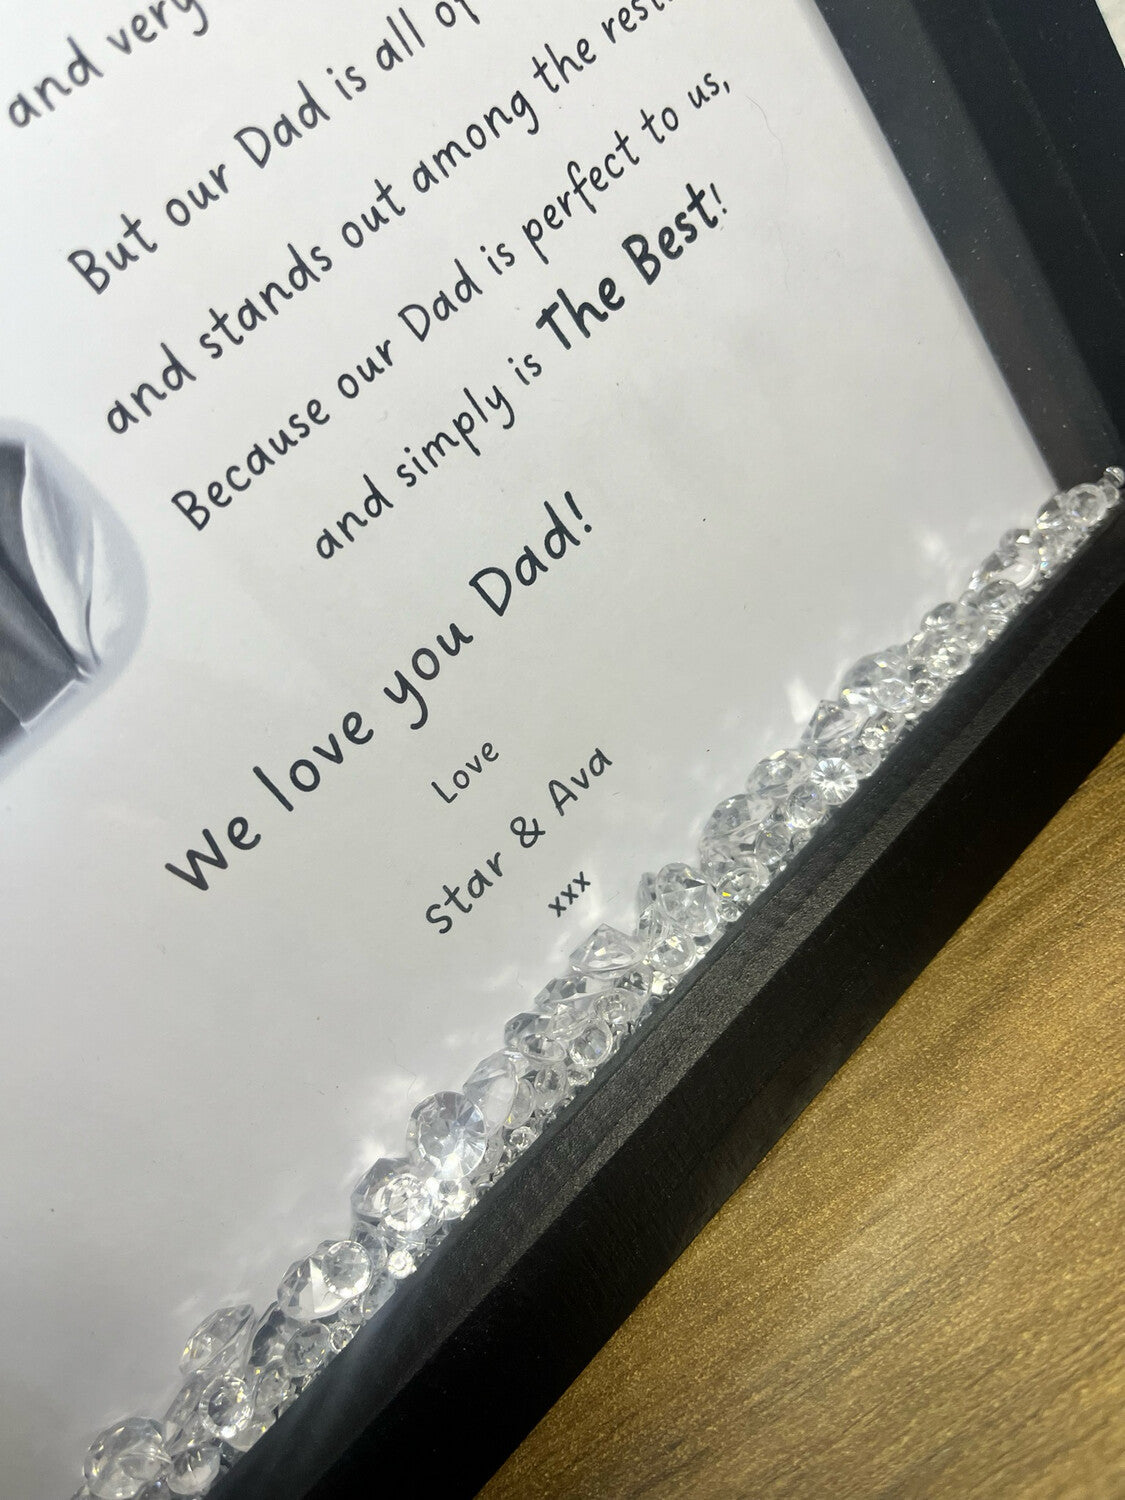 and very
But our Dad is all of
and stands out among the rest.
Because our Dad is perfect to us,
and simply is The Best!
We love you Dad!
Love
Star & Ava
xxx